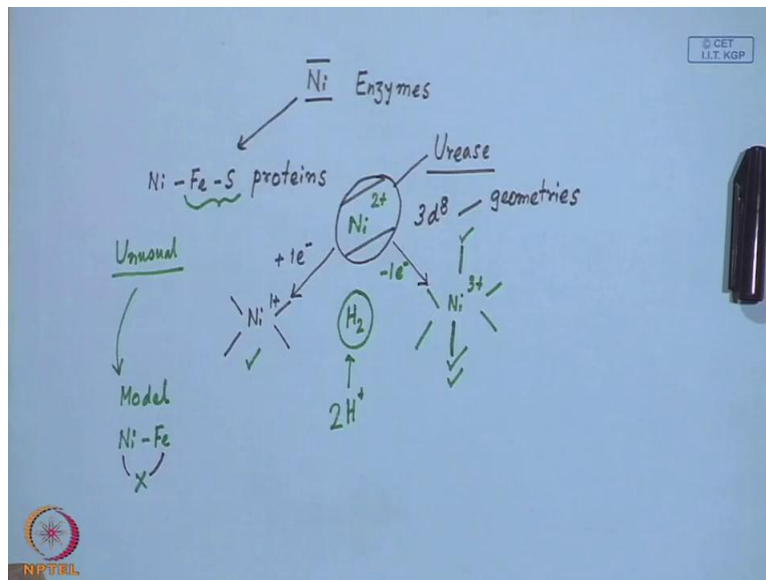 © CET
I.I.T. KGP
Ni Enzymes
Urease
Ni-Fe-S proteins
Ni 2+ 3d8 geometries
Unusual
+1e- -1e-
Ni 1+ H2 Ni 3+
2H+
Model
Ni-Fe
X
NPTEL